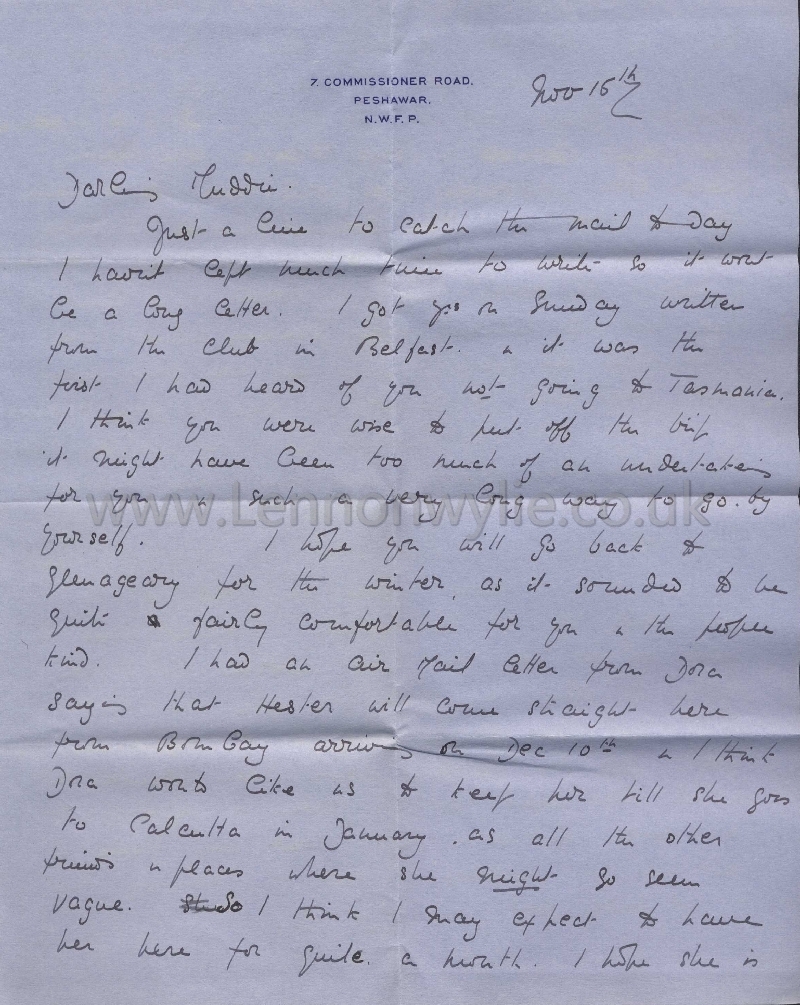 7. COMMISSIONER ROAD,
PESHAWAR,
N.W.F.P.
Nov 16th
Darling Muddie.
Just a line to catch the mail to day
I havn't left much time to write so it wont
be a long letter. I got yrs on Sunday written
from the club in Belfast. & it was the
first I had heard of you not going to Tasmania.
I think you were wise to put off the trip
it might have been too much of an undertaking
for you & such a very long way to go. by
www.Lennonwylie.co.uk
yourself. I hope you will go back to
Glenageary for the winter, as it sounded to be
quite fairly comfortable for you & the people
kind. I had an Air Mail letter from Dora
saying that Hester will come straight here
from Bombay arriving on Dec 10th & I think
Dora wants like us to keep her till she goes
to Calcutta in January. as all the other
friends & places where she might go seem
vague. So I think I may expect to have
her here for quite. a month. I hope she is